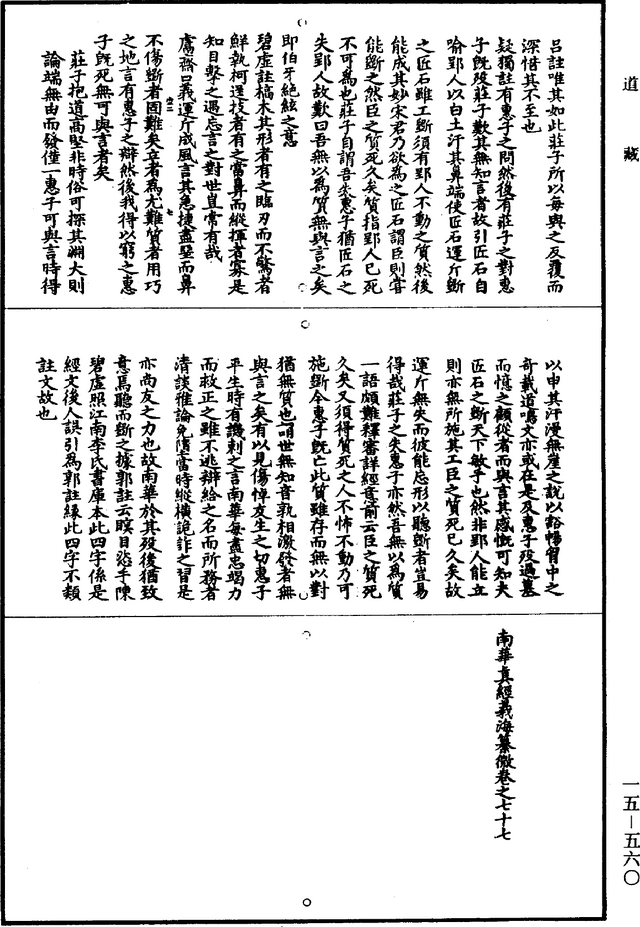 道藏
呂註唯其如此莊子所以每與之反覆而
深惜其不至也
疑獨註有惠子之問然後有莊子之對惠
子旣歿莊子歎其無知言者故引匠石自
喻郢人以白土汙其鼻端使匠石運斤斷
之匠石雖工斷須有郢人不動之質然後
能成其妙宋君乃欲為之匠石謂臣則嘗
能斷之然臣之質死久矣質指郢人已死
不可為也莊子自謂吾失惠子猶匠石之
失郢人故歎曰吾無以為質無與言之矣
即伯牙絕絃之意
碧虛註槁木其形者有之臨刃而不驚者
鮮執柯逞技者有之當鼻而縱揮者寡是
知目擊之遇忘言之對世豈常有哉
鬳齋口義運斤成風言其急捷盡堊而鼻
不傷斷者固難矣立者為尤難質者用巧
之地言有惠子之辯然後我得以窮之惠
子旣死無可與言者矣
莊子抱道高堅非時俗可探其淵大則
論端無由而發僅一惠子可與言時得
以申其汗漫無崖之說以豁暢胷中之
奇載道鳴文亦或在是及惠子歿過墓
而憶之顧從者而與言其感慨可知夫
匠石之斷天下敏手也然非郢人能立
則亦無所施其工臣之質死已久矣故
運斤無失而彼能忘形以聽斷者豈易
得哉莊子之失惠子亦然吾無以為質
一語頗難釋審詳經意前云臣之質死
久矣又須得質死之人不怖不動乃可
施斷今惠子旣亡此質雖存而無以對
猶無質也唄世無知音孰相激發者無
與言之矣有以見傷悼友生之切惠子
平生時有譏刺之言南華每盡忠竭力
而救正之雖不逃辯給之名而所務者
清談雅論免墮當時縱橫詭詐之習是
亦尚友之力也故南華於其歿後猶致
意焉聽而斷之據郭註云瞑目恣手陳
碧虛照江南李氏書庫本此四字係是
經文後人誤引為郭註緣此四字不類
註文故也
南華真經義海纂微卷之七十七
一五—五六〇